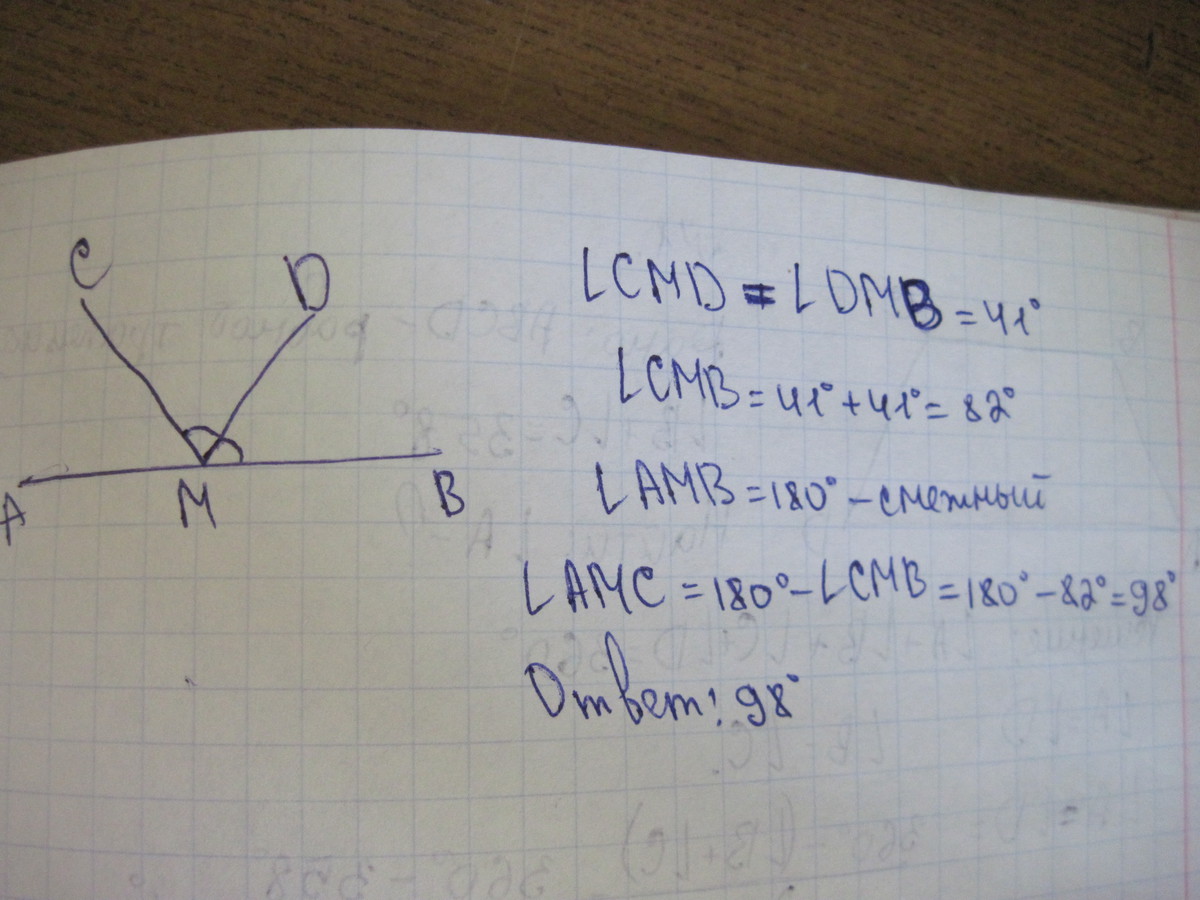 C
D
A
M
B
∠CMD = ∠DMB = 41°
∠CMB = 41° + 41° = 82°
∠AMB = 180° - смежный
∠AMC = 180° - ∠CMB = 180° - 82° = 98°
Ответ: 98°